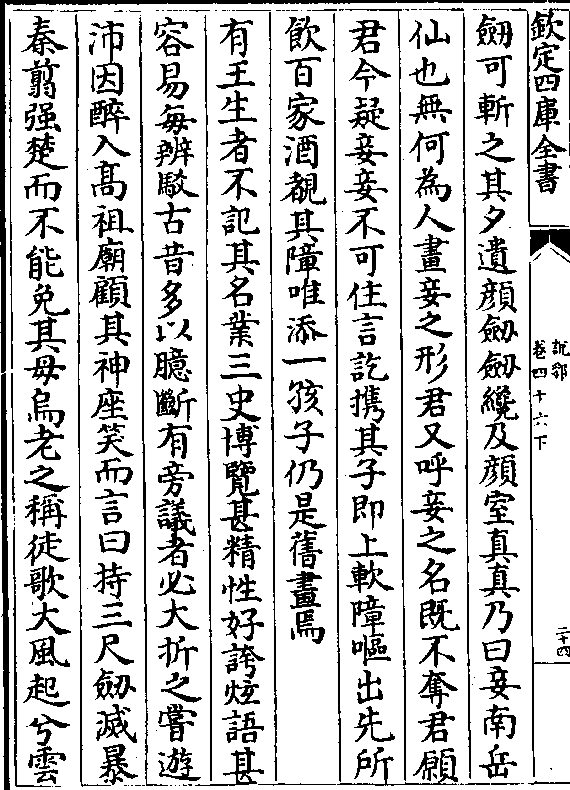 欽定四庫全書
說郛
卷四十六下
二十四
劒可斬之其夕遺顔劒劒纔及顔室真真乃曰妾南岳
仙也無何為人畫妾之形君又呼妾之名既不奪君願
君今疑妾妾不可住言訖攜其子即上軟障嘔出先所
飲百家酒覩其障唯添一孩子仍是舊畫焉
有王生者不記其名業三史博覽甚精性好誇炫語甚
容易每辨駁古昔多以臆斷有旁議者必大折之嘗遊
沛因醉入髙祖廟顧其神座笑而言曰持三尺劒滅暴
秦翦强楚而不能免其母烏老之稱徒歌大風起兮雲